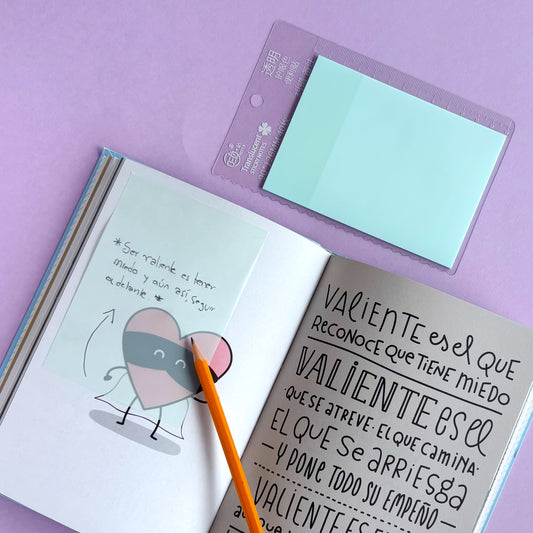 透明
护眼色
便利贴
Translucent
STICKY NOTES
*Ser valiente es tener
miedo y aún así, seguir
adelante *
VALIENTE es el QUE
RECONOCE QUE TIENE MIEDO
VALIENTE es el
QUE SE ATREVE· EL QUE CAMINA·
EL QUE Se ARRIESGA
— Y PONE TODO SU EMPEÑO —
VALIENTE ES EL